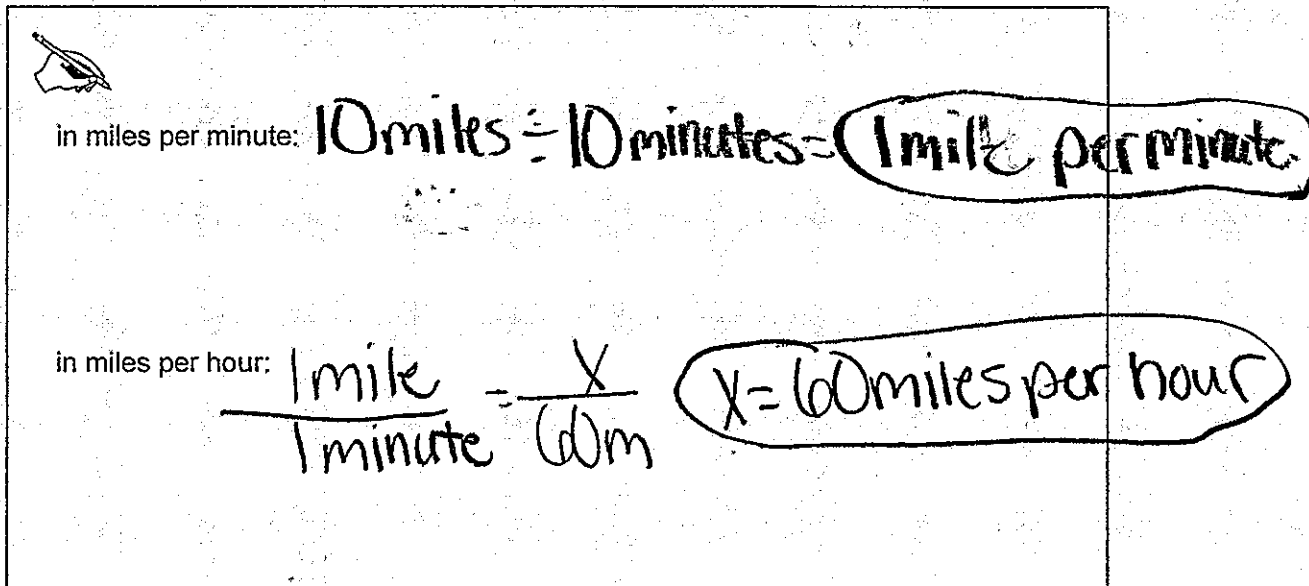 in miles per minute: 10 miles ÷ 10 minutes = 1 mile per minute.
in miles per hour: 1 mile / 1 minute = X / 60m X = 60 miles per hour